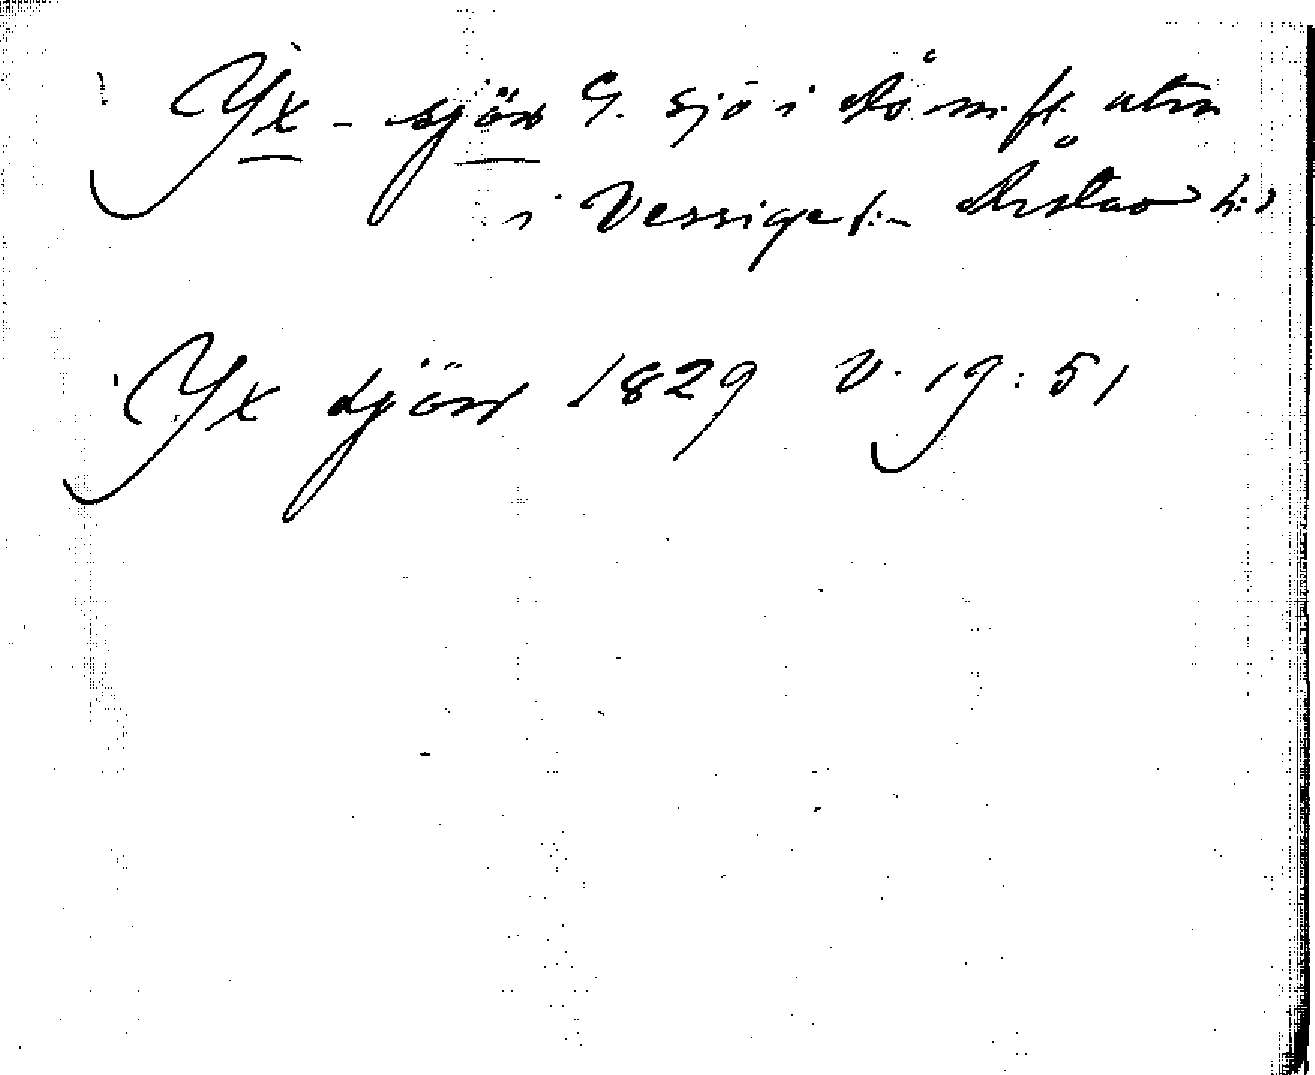 Yx-sjön G. sjö i Ås m. fl. utm
i Vessige s:n Årstad h:d
Yx sjön 1829 V. 19:51